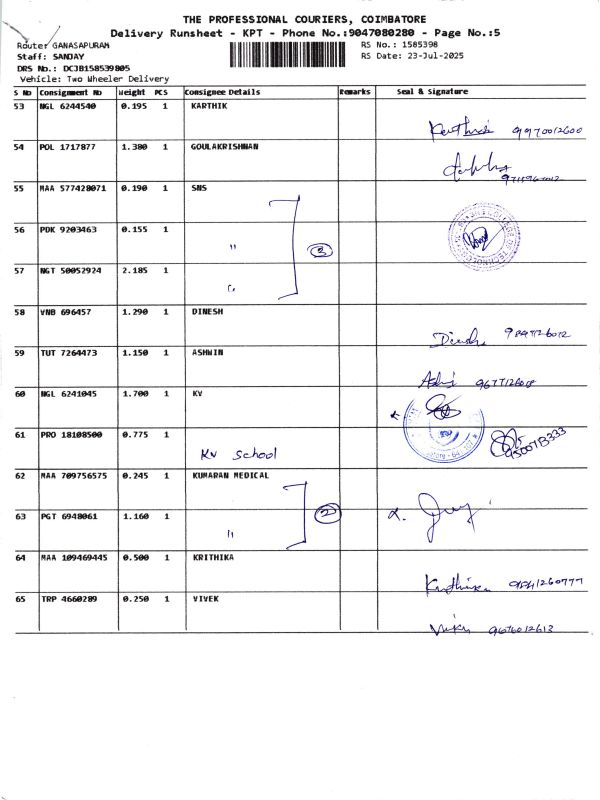 THE PROFESSIONAL COURIERS, COIMBATORE
Delivery Runsheet - KPT - Phone No.:9047080280 - Page No.:5
Route: GANASAPURAM
RS No.: 1585398
Staff: SANJAY
RS Date: 23-Jul-2025
DRS No.: DCJB158539805
Vehicle: Two Wheeler Delivery
S No Consignment No Weight PCS Consignee Details Remarks Seal & Signature
53 NGL 6244540 0.195 1 KARTHIK
Karthik 9970012600
54 POL 1717877 1.380 1 GOULAKRISHNAN
55 MAA 577428071 0.190 1 SNS
56 PDK 9203463 0.155 1 "
3
57 NGT 50052924 2.185 1 "
58 VNB 696457 1.290 1 DINESH
Dinesh
59 TUT 7264473 1.150 1 ASHWIN
60 NGL 6241045 1.700 1 KV
61 PRO 18108500 0.775 1
KV School
9500713333
62 MAA 709756575 0.245 1 KUMARAN MEDICAL
2
63 PGT 6948061 1.160 1 "
64 MAA 109469445 0.500 1 KRITHIKA
Krithika 9841260777
65 TRP 4660289 0.250 1 VIVEK
9676012613